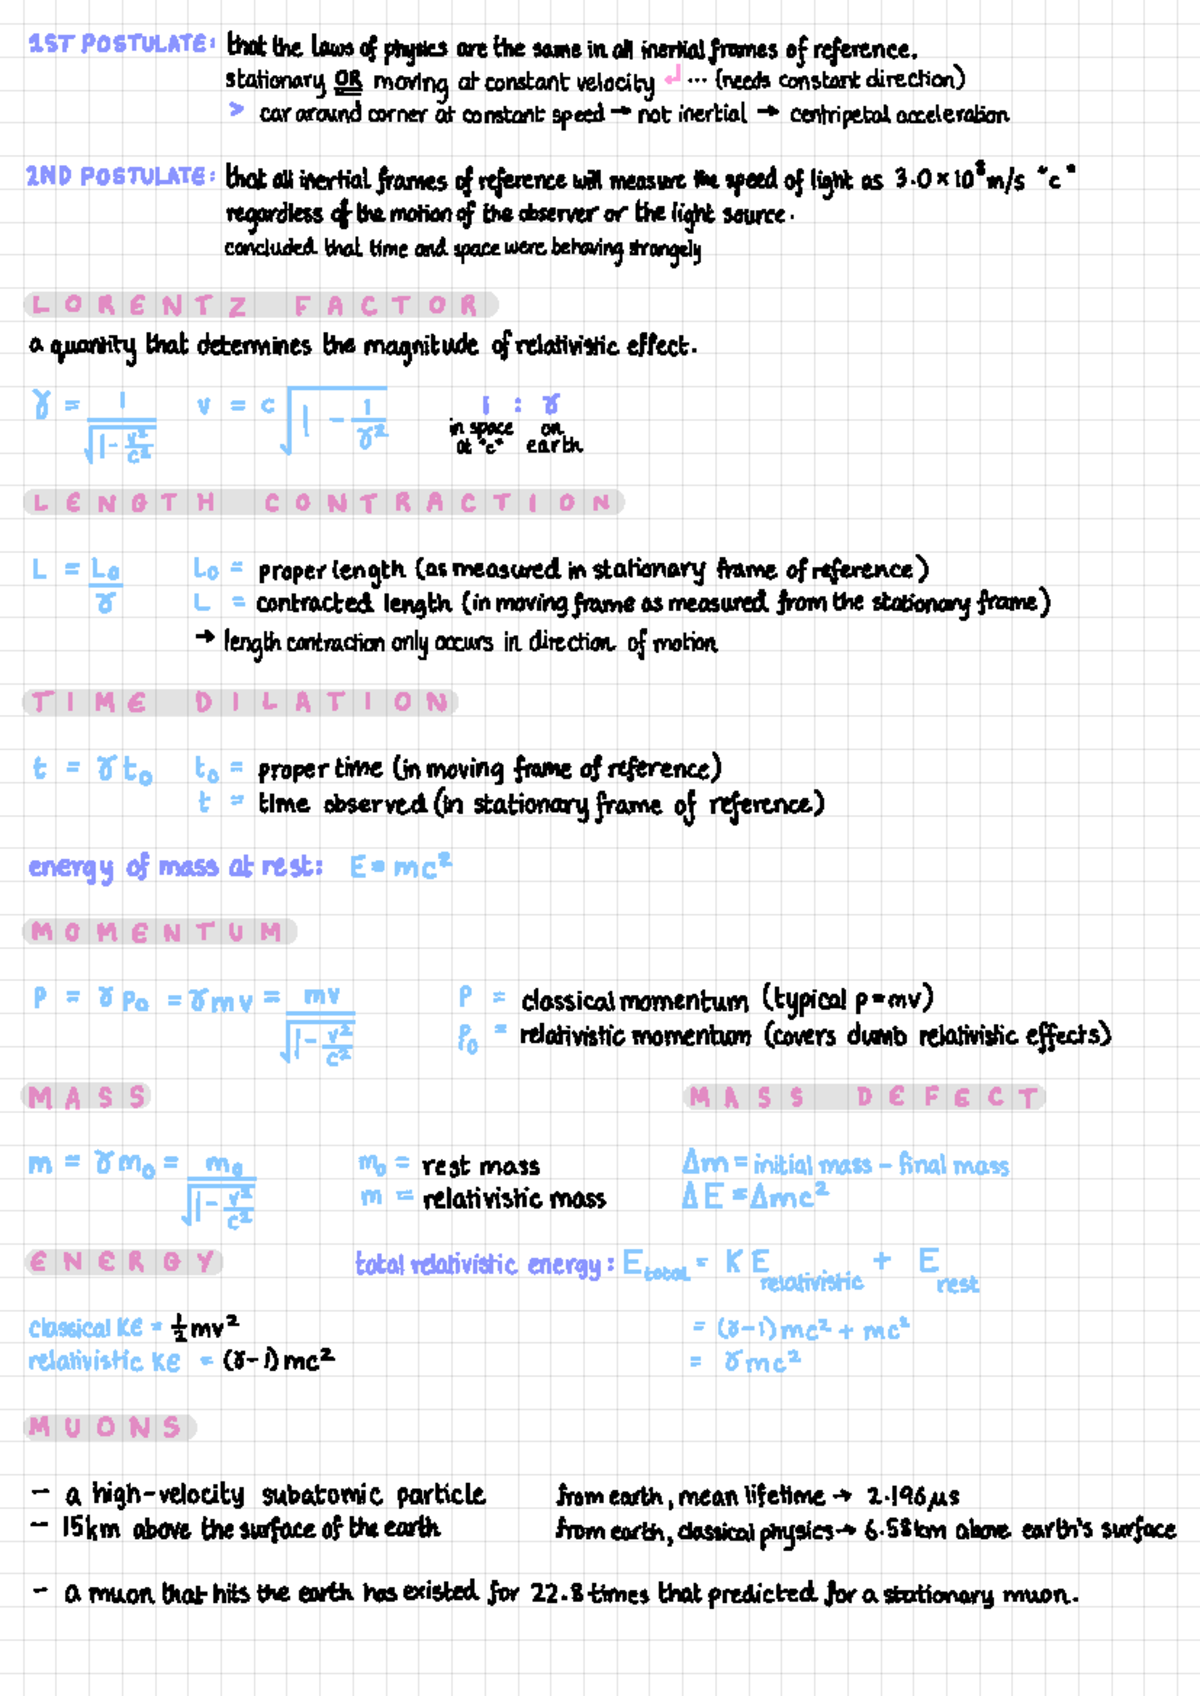 1ST POSTULATE: that the laws of physics are the same in all inertial frames of reference.
stationary OR moving at constant velocity ↲ ... (needs constant direction)
> car around corner at constant speed → not inertial → centripetal acceleration
2ND POSTULATE: that all inertial frames of reference will measure the speed of light as 3.0 × 10⁸ m/s "c"
regardless of the motion of the observer or the light source.
concluded that time and space were behaving strangely
LORENTZ FACTOR
a quantity that determines the magnitude of relativistic effect.
γ = 1/√(1 - v²/c²) v = c√(1 - 1/γ²) 1 : γ
in space at "c" on earth
LENGTH CONTRACTION
L = L₀/γ L₀ = proper length (as measured in stationary frame of reference)
L = contracted length (in moving frame as measured from the stationary frame)
→ length contraction only occurs in direction of motion
TIME DILATION
t = γt₀ t₀ = proper time (in moving frame of reference)
t = time observed (in stationary frame of reference)
energy of mass at rest: E = mc²
MOMENTUM
P = γP₀ = γmv = mv/√(1 - v²/c²) P = classical momentum (typical p=mv)
P₀ = relativistic momentum (covers dumb relativistic effects)
MASS MASS DEFECT
m = γm₀ = m₀/√(1 - v²/c²) m₀ = rest mass Δm = initial mass - final mass
m = relativistic mass ΔE = Δmc²
ENERGY total relativistic energy: E total = KE relativistic + E rest
classical KE = ½mv² = (γ-1)mc² + mc²
relativistic KE = (γ-1)mc² = γmc²
MUONS
- a high-velocity subatomic particle from earth, mean lifetime → 2.196μs
- 15km above the surface of the earth from earth, classical physics → 6.58km above earth's surface
- a muon that hits the earth has existed for 22.8 times that predicted for a stationary muon.